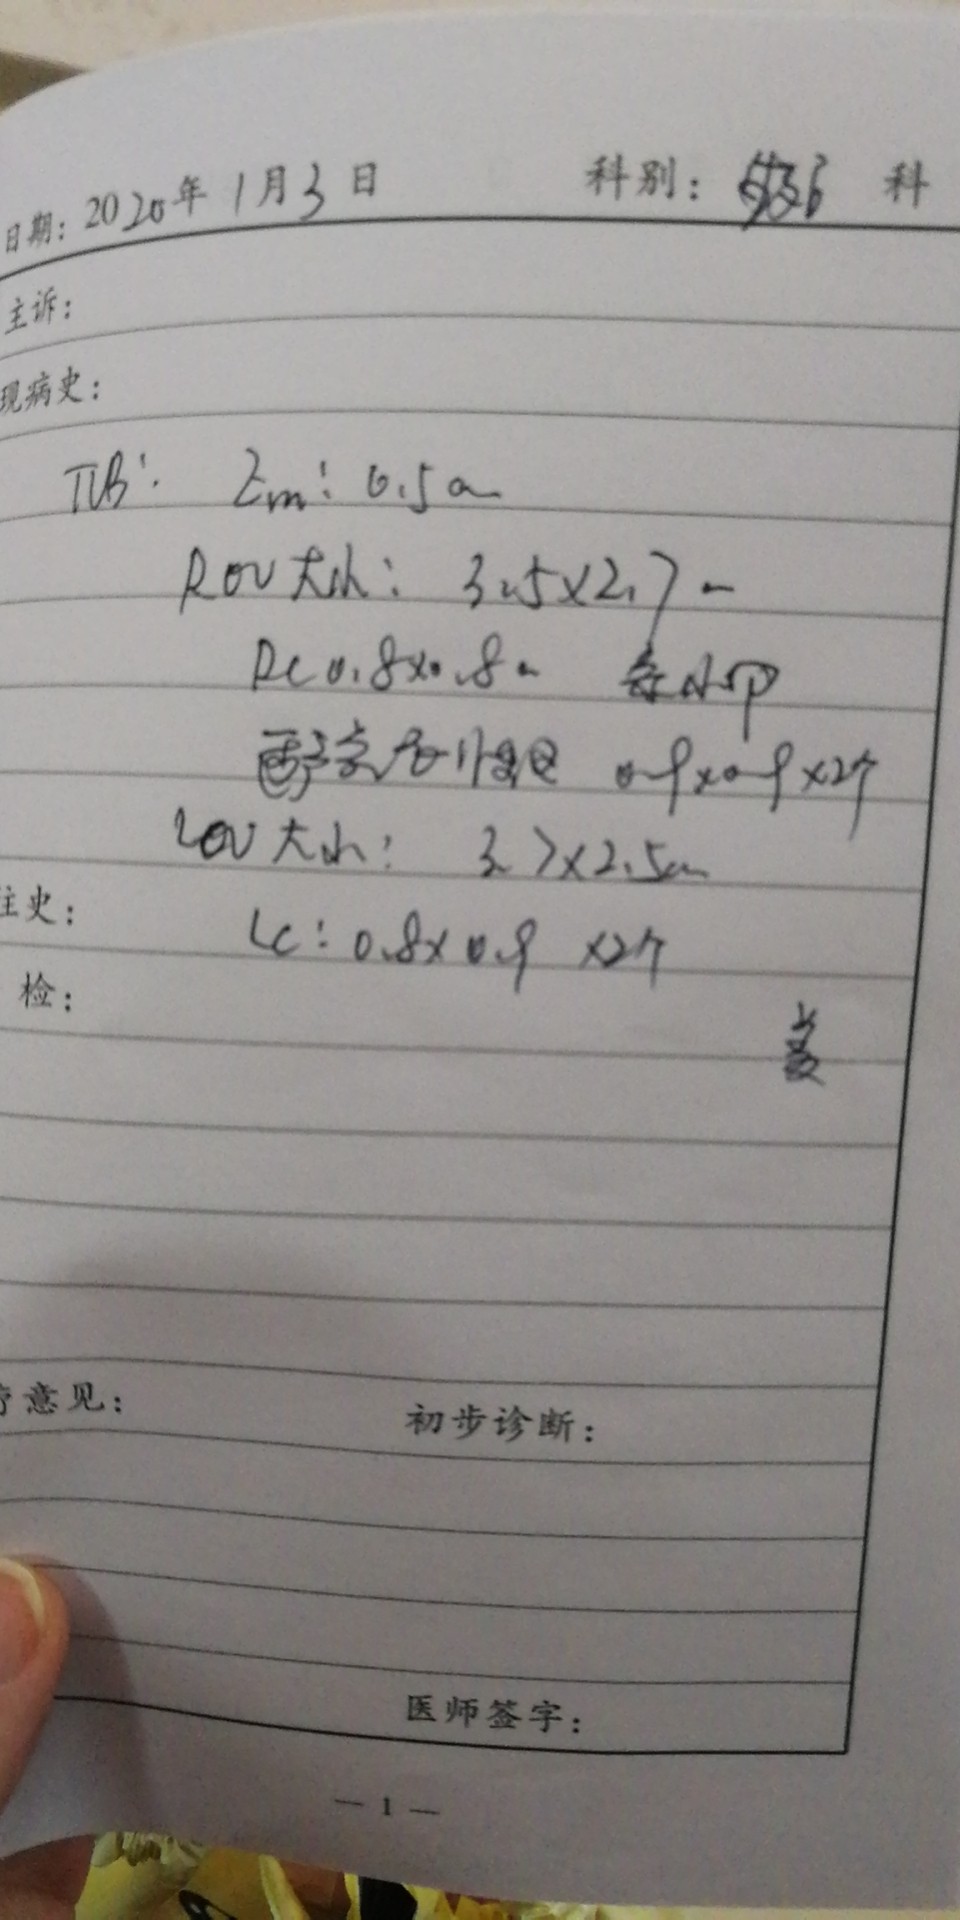 日期: 2020年 1月3日 科别: 科
主诉:
现病史:
TVB: Em: 0.5cm
ROV大小: 3.5×2.7
RC 0.8×0.8 余小卵
0.9×0.9×2个
LOV大小: 3.7×2.5cm
往史:
LC: 0.8×0.9 ×2个
检:
姜
疗意见: 初步诊断:
医师签字:
— 1 —